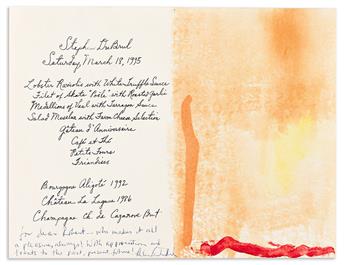 Steph DuBrul
Saturday, March 18, 1995
Lobster Raviolis with White Truffle Sauce
Filet of Skate "Poêlé" with Roasted Garlic
Medallions of Veal with Tarragon Sauce
Salad Mesclun with Farm Cheese Selection
Gâteau d'Anniversaire
Café et Thé
Petits Fours
Friandises
Bourgogne Aligoté 1992
Château La Lagune 1986
Champagne Ch. de Cazanove Brut
for dear Robert - who makes it all
a pleasure, always! With appreciation and
toasts to the past, present, future!